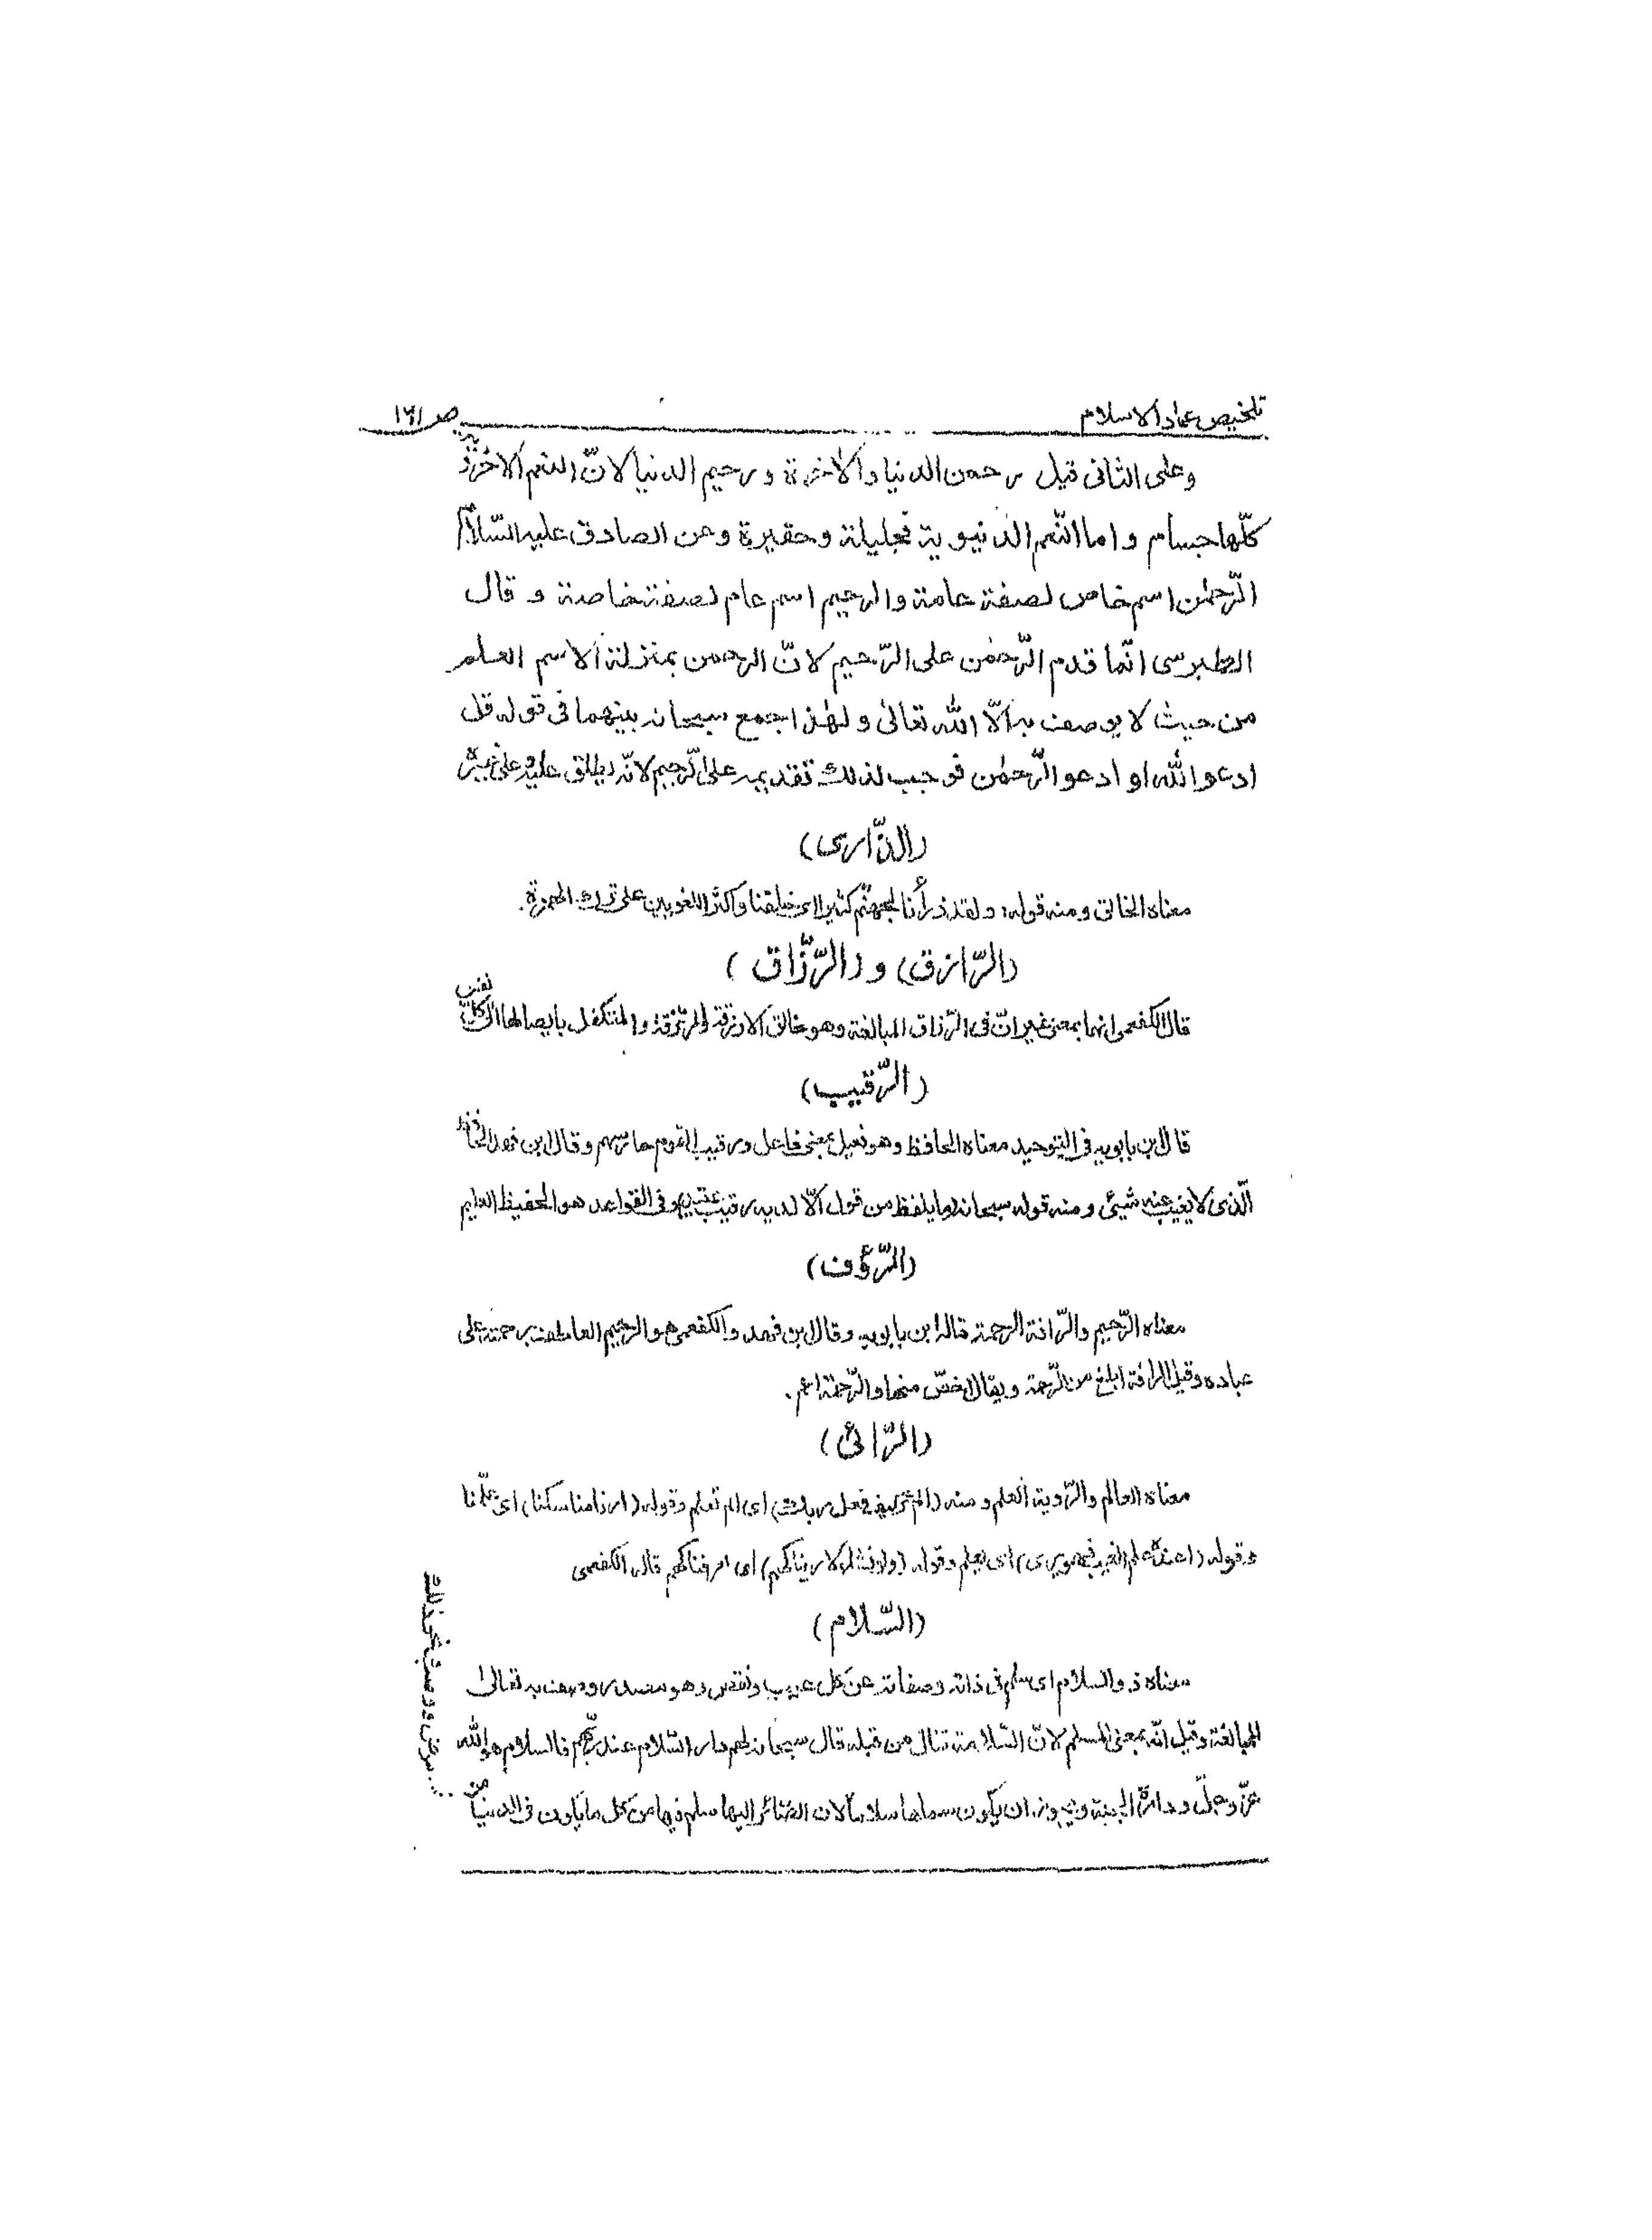 تلخيص عماد الاسلام
ص ١٦١
وعلى الثانى قيل رحمن الدنيا والآخرة ورحيم الدنيا لانّ النعم الاخروية
كلّها جسام واما النّعم الدنيوية فجليلة وحقيرة وعن الصادق عليه السّلام
الرّحمٰن اسم خاص لصفة عامة والرحيم اسم عام لصفة خاصة وقال
الطبرسى انّما قدم الرّحمٰن على الرّحيم لانّ الرحمن بمنزلة الاسم العلم
من حيث لا يوصف به الّا اللّٰه تعالىٰ ولهٰذا جمع سبحانه بينهما فى قوله قل
ادعوا اللّٰه او ادعو الرّحمٰن فوجب لذلك تقديمه على الرّحيم لانّه يطلق عليه وعلى غيره
(الذّارى)
معناه الخالق ومنه قوله: ولقد ذرأنا لجهنّم كثيرا اى خلقنا واكثر اللغويين على ترك الهمزة.
(الرّازق) و (الرّزّاق)
قال الكفعمى انهما بمعنى غير انّ فى الرّزاق المبالغة وهو خالق الارزقة والمرتزقة والمتكفل بايصالها الى كلّ نفس
(الرّقيب)
قال ابن بابويه فى التوحيد معناه الحافظ وهو فعيل بمعنى فاعل ورقيب القوم حارسهم وقال ابن فهد الحافظ
الّذى لا يغيب عنه شيئى ومنه قوله سبحانه ما يلفظ من قول الّا لديه رقيب عتيد وفى القواعد هو الحفيظ العليم
(الرّؤف)
معناه الرّحيم والرّافة الرحمة قاله ابن بابويه وقال ابن فهد والكفعمى هو الرحيم العاطف برحمته على
عباده وقيل الرافة ابلغ من الرّحمة ويقال اخصّ منها والرّحمة اعم.
(الرّائى)
معناه العالم والرّوية العلم ومنه (الم تر كيف فعل ربك) اى الم تعلم وقوله (ارنا مناسكنا) اى علّمنا
وقوله (اعنده علم الغيب فهو يرى) اى يعلم وقوله (ولو نشاء لاريناكهم) اى عرفناكهم قاله الكفعمى
(السّلام)
معناه ذو السلام اى سلم فى ذاته وصفاته عن كل عيب ونقص وهو مصدر وصف به تعالىٰ
للمبالغة وقيل انّه بمعنى المسلم لانّ السّلامة تنال من قبله قال سبحانه لهم دار السّلام عند ربّهم فالسلام هو اللّٰه
عزّ وجلّ وداره الجنة ويجوز ان يكون سماها سلاما لان الصّائر اليها سلم فيها من كل ما يكون فى الدنيا من
مرض ووصب نحو ذلك